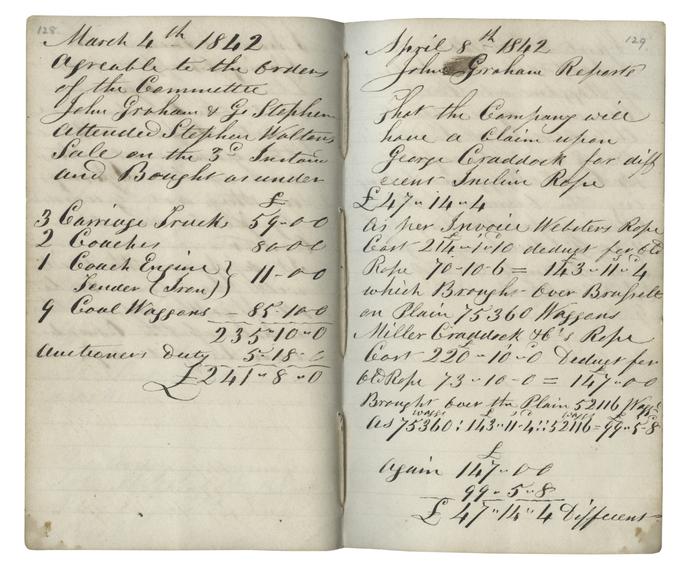 128
March 4th 1842
Agreable to the Orders
of the Committee
John Graham & G. Stephen
Attended Stephen Waltons
Sale on the 3d Instant
and Bought as under
£
3 Carriage Trucks 59-0-0
2 Coaches 80-0-0
1 Coach Engine } 11-0-0
Tender (Iron) }
9 Coal Waggons - 85-10-0
235-10-0
Auctioners Duty 5-18-0
£241-8-0
129
April 8th 1842
John Graham Reports
That the Company will
have a Claim upon
George Craddock for diff
erent Incline Rope
£47-14-4
As per Invoice Websters Rope
Cost 214-1-10 deduct for Old
Rope 70-10-6 = 143-11-4
which Brought Over Brusselton
on Plain 75360 Waggons
Miller Craddock & Co's Rope
Cost 220-10-0 Deduct for
Old Rope 73-10-0 = 147-0-0
Brought over the Plain 52116 Wags
Wags £ s d Wags £ s d
As 75360 : 143-11-4 :: 52116 = 99-5-8
£
Again 147-0-0
99-5-8
£47-14-4 Different